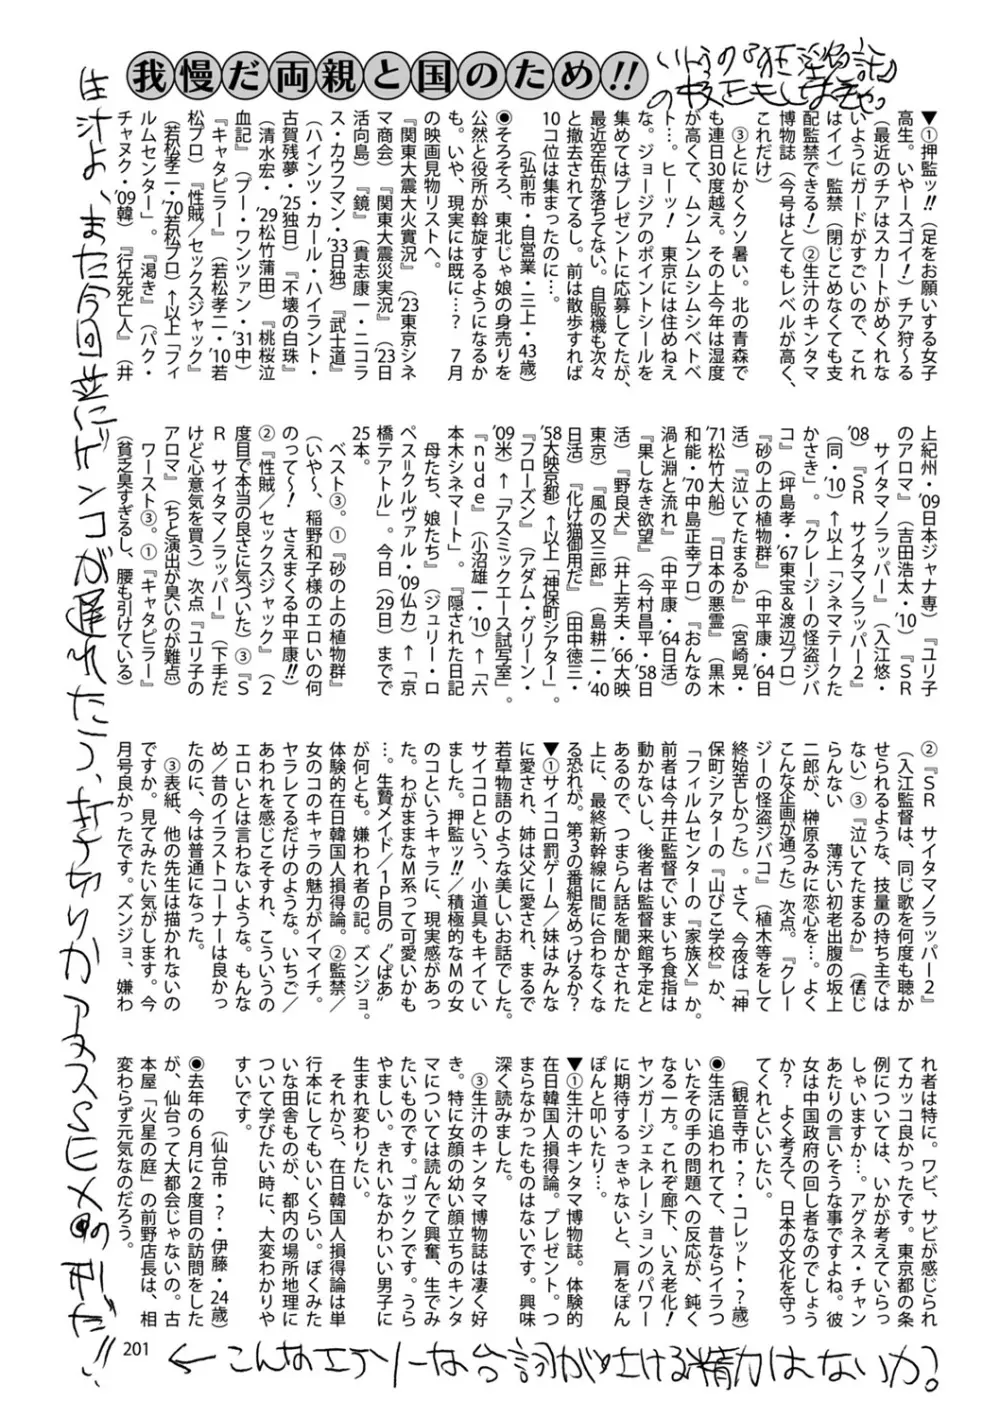 我慢だ両親と国のため!!
▼①押監ッ!!（足をお願いする女子
高生。いやースゴイ！）チア狩～る
（最近のチアはスカートがめくれな
いようにガードがすごいので、これ
はイイ）監禁（閉じこめなくても支
配監禁できる！）②生汁のキンタマ
博物誌（今号はとてもレベルが高く、
これだけ）
③とにかくクソ暑い。北の青森で
も連日30度越え。その上今年は湿度
が高くて、ムンムンムシムシベトベ
ト…。ヒーッ！　東京には住めねえ
な。ジョージアのポイントシールを
集めてはプレゼントに応募してたが、
最近空缶が落ちてない。自販機も次々
と撤去されてるし。前は散歩すれば
10コ位は集まったのに…。
（弘前市・自営業・三上・43歳）
◉そろそろ、東北じゃ娘の身売りを
公然と役所が斡旋するようになるか
も。いや、現実には既に…？　7月
の映画見物リストへ。
『関東大震大火實況』（'23東京シネ
マ商会）『関東大震災実況』（'23日
活向島）『鏡』（貴志康一・ニコラ
ス・カウフマン・'33日独）『武士道』
（ハインツ・カール・ハイラント・
古賀残夢・'25独日）『不壊の白珠』
（清水宏・'29松竹蒲田）『桃桜泣
血記』（プー・ワンツァン・'31中）
『キャタピラー』（若松孝二・'10若
松プロ）『性賊／セックスジャック』
（若松孝二・'70若松プロ）↑以上「フィ
ルムセンター」。『渇き』（パク・
チャヌク・'09韓）『行先死亡人』（井
上紀州・'09日本ジャナ専）『ユリ子
のアロマ』（吉田浩太・'10）『SR
　サイタマノラッパー』（入江悠・
'08）『SR　サイタマノラッパー2』
（同・'10）↑以上「シネマテークた
かさき」。『クレージーの怪盗ジバ
コ』（坪島孝・'67東宝&渡辺プロ）
『砂の上の植物群』（中平康・'64日
活）『泣いてたまるか』（宮崎晃・
'71松竹大船）『日本の悪霊』（黒木
和能・'70中島正幸プロ）『おんなの
渦と淵と流れ』（中平康・'64日活）
『果しなき欲望』（今村昌平・'58日
活）『野良犬』（井上芳夫・'66大映
東京）『風の又三郎』（島耕二・'40
日活）『化け猫御用だ』（田中徳三・
'58大映京都）↑以上「神保町シアター」。
『フローズン』（アダム・グリーン・
'09米）↑「アスミックエース試写室」。
『ｎｕｄｅ』（小沼雄一・'10）↑「六
本木シネマート」。『隠された日記
　母たち、娘たち』（ジュリー・ロ
ペス＝クルヴァル・'09仏カ）↑「京
橋テアトル」。今日（29日）までで
25本。
　ベスト③。①『砂の上の植物群』
（いや〜、稲野和子様のエロいの何
のって〜！　さえまくる中平康!!）
②『性賊／セックスジャック』（2
度目で本当の良さに気づいた）③『S
R　サイタマノラッパー』（下手だ
けど心意気を買う）次点『ユリ子の
アロマ』（ちと演出が臭いのが難点）
　ワースト③。①『キャタピラー』
（貧乏臭すぎるし、腰も引けている）
②『SR　サイタマノラッパー2』
（入江監督は、同じ歌を何度も聴か
せられるような、技量の持ち主では
ない）③『泣いてたまるか』（信じ
らんない　薄汚い初老出腹の坂上
二郎が、榊原るみに恋心を…。よく
こんな企画が通った）次点。『クレー
ジーの怪盗ジバコ』（植木等をして
終始苦しかった）。さて、今夜は「神
保町シアターの『山びこ学校』か、
「フィルムセンターの『家族X』か。
前者は今井正監督でいまいち食指は
動かないし、後者は監督来館予定と
あるので、つまらん話を聞かされた
上に、最終新幹線に間に合わなくな
る恐れが。第3の番組をめっけるか？
▼①サイコロ罰ゲーム／妹はみんな
に愛され、姉は父に愛され、まるで
若草物語のような美しいお話でした。
サイコロという、小道具もキイてい
ました。押監ッ!!／積極的なMの女
のコというキャラに、現実感があっ
た。わがままなM系って可愛いかも
…。生贄メイド／1P目の〝くぱあ〟
が何とも。嫌われ者の記。ズンジョ。
体験的在日韓国人損得論。②監禁／
女のコのキャラの魅力がイマイチ。
ヤラレてるだけのような。いちご／
あわれを感じこそすれ、こういうの
エロいとは言わないような。もんな
め／昔のイラストコーナーは良かっ
たのに、今は普通になった。
　③表紙、他の先生は描かれないの
ですか。見てみたい気がします。今
月号良かったです。ズンジョ、嫌わ
れ者は特に。ワビ、サビが感じられ
てカッコ良かったです。東京都の条
例については、いかが考えていらっ
しゃいますか…。アグネス・チャン
あたりの言いそうな事ですよね。彼
女は中国政府の回し者なのでしょう
か？　よく考えて、日本の文化を守っ
てくれといいたい。
（観音寺市・？・コレット・？歳）
◉生活に追われてて、昔ならイラつ
いたその手の問題への反応が、鈍く
なる一方。これぞ廊下、いえ老化！
ヤンガージェネレーションのパワー
に期待するっきゃないと、肩をぽん
ぽんと叩いたり…。
▼①生汁のキンタマ博物誌。体験的
在日韓国人損得論。プレゼント。つ
まらなかったものはないです。興味
深く読みました。
　③生汁のキンタマ博物誌は凄く好
き。特に女顔の幼い顔立ちのキンタ
マについては読んでて興奮、生でみ
たいものです。ゴックンです。うら
やましい。きれいなかわいい男子に
生まれ変わりたい。
　それから、在日韓国人損得論は単
行本にしてもいいくらい。ぼくみた
いな田舎ものが、都内の場所地理に
ついて学びたい時に、大変わかりや
すいです。
（仙台市・？・伊藤・24歳）
◉去年の6月に2度目の訪問をした
が、仙台って大都会じゃないの。古
本屋「火星の庭」の前野店長は、相
変わらず元気なのだろう。
生汁よ、また今回並にゲンコが遅れたら、打ち切りか
の刑だ!!
201
←こんなエラソーな台詞が吐ける精力はないか？